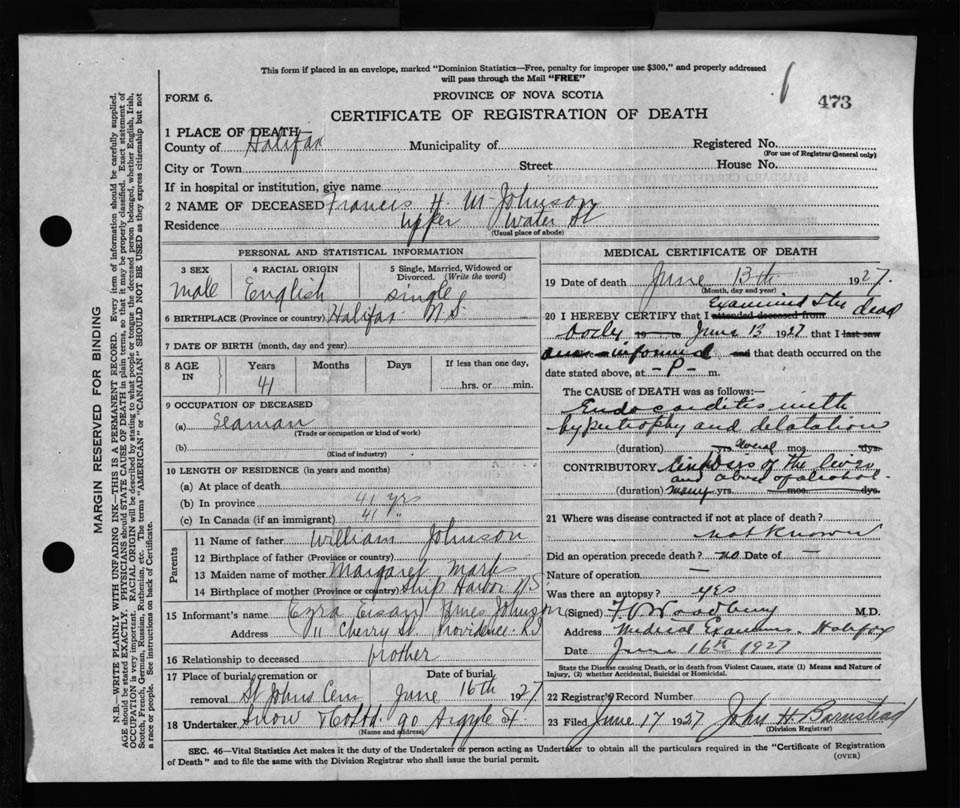 This form if placed in an envelope, marked "Dominion Statistics—Free, penalty for improper use $300," and properly addressed
will pass through the Mail "FREE"
FORM 6.
PROVINCE OF NOVA SCOTIA
473
CERTIFICATE OF REGISTRATION OF DEATH
1 PLACE OF DEATH—
County of Halifax Municipality of Registered No.
(For use of Registrar General only)
City or Town Street House No.
If in hospital or institution, give name
2 NAME OF DECEASED Francis H. W Johnson
Residence Upper Water St
(Usual place of abode)
PERSONAL AND STATISTICAL INFORMATION
3 SEX 4 RACIAL ORIGIN 5 Single, Married, Widowed or Divorced. (Write the word)
male English single
6 BIRTHPLACE (Province or country) Halifax N.S.
7 DATE OF BIRTH (month, day and year)
8 AGE IN Years Months Days If less than one day,
41 hrs. or min.
9 OCCUPATION OF DECEASED
(a) Seaman
(Trade or occupation or kind of work)
(b)
(Kind of industry)
10 LENGTH OF RESIDENCE (in years and months)
(a) At place of death
(b) In province 41 yrs
(c) In Canada (if an immigrant) 41 "
Parents
11 Name of father William Johnson
12 Birthplace of father (Province or country)
13 Maiden name of mother Margaret Marks
14 Birthplace of mother (Province or country) Ship Harbor N S
15 Informant's name Ezra Johnson
Address 11 Cherry St. Providence. R.I
16 Relationship to deceased brother
17 Place of burial cremation or removal Date of burial
St Johns Cem June 16th 1927
18 Undertaker Snow & Co Ltd 90 Argyle St.
(Name and address)
MEDICAL CERTIFICATE OF DEATH
19 Date of death June 13th 1927.
(Month, day and year)
20 I HEREBY CERTIFY that I attended deceased from examined the dead
body to June 13 1927 that I last saw
informed and that death occurred on the
date stated above, at -P- m.
The CAUSE of DEATH was as follows:—
Endocarditis with
hypertrophy and dilatation
(duration) yrs. mos. dys.
CONTRIBUTORY Cirrhosis of the liver
and abuse of alcohol.
(duration) many yrs. mos. dys.
21 Where was disease contracted if not at place of death?
not known
Did an operation precede death? no Date of —
Nature of operation —
Was there an autopsy? yes
(Signed) Woodbury M.D.
Address Medical Examiner. Halifax
Date June 16th 1927
State the Disease causing Death, or in death from Violent Causes, state (1) Means and Nature of
Injury, and (2) whether Accidental, Suicidal or Homicidal.
22 Registrar's Record Number
23 Filed June 17 1927 John H. Barnstead
(Division Registrar)
SEC. 46—Vital Statistics Act makes it the duty of the Undertaker or person acting as Undertaker to obtain all the particulars required in the "Certificate of Registration
of Death" and to file the same with the Division Registrar who shall issue the burial permit.
(OVER)
MARGIN RESERVED FOR BINDING
N.B.—WRITE PLAINLY WITH UNFADING INK—THIS IS A PERMANENT RECORD. Every item of information should be carefully supplied.
AGE should be stated EXACTLY. PHYSICIANS should STATE CAUSE OF DEATH in plain terms, so that it may be properly classified. Exact statement of
OCCUPATION is very important. RACIAL ORIGIN will be described by stating to what people or tongue the deceased person belonged, whether English, Irish,
Scotch, French, German, Russian, Ruthenian, etc. The terms "AMERICAN" or "CANADIAN" SHOULD NOT BE USED as they express citizenship but not
a race or people. See instructions on back of Certificate.